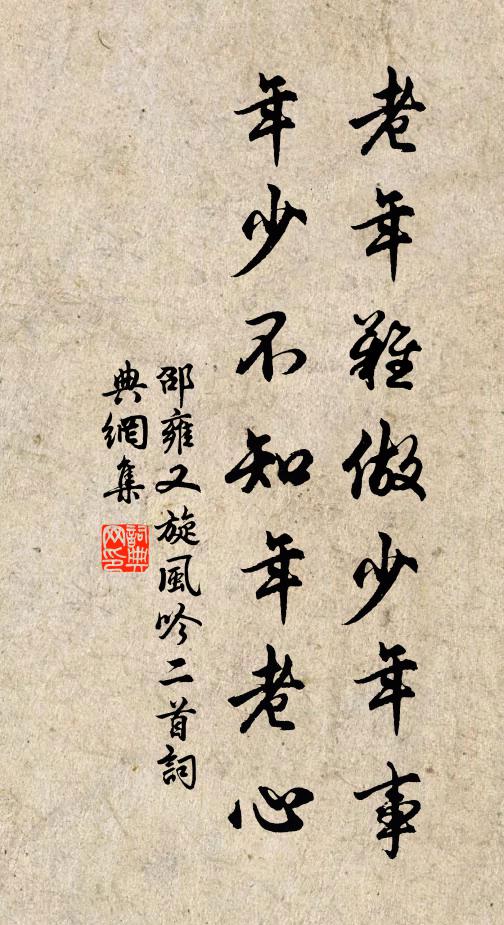 老年難做少年事
年少不知年老心
邵雍又旋風吟二首詞
典網集
詞典
网印